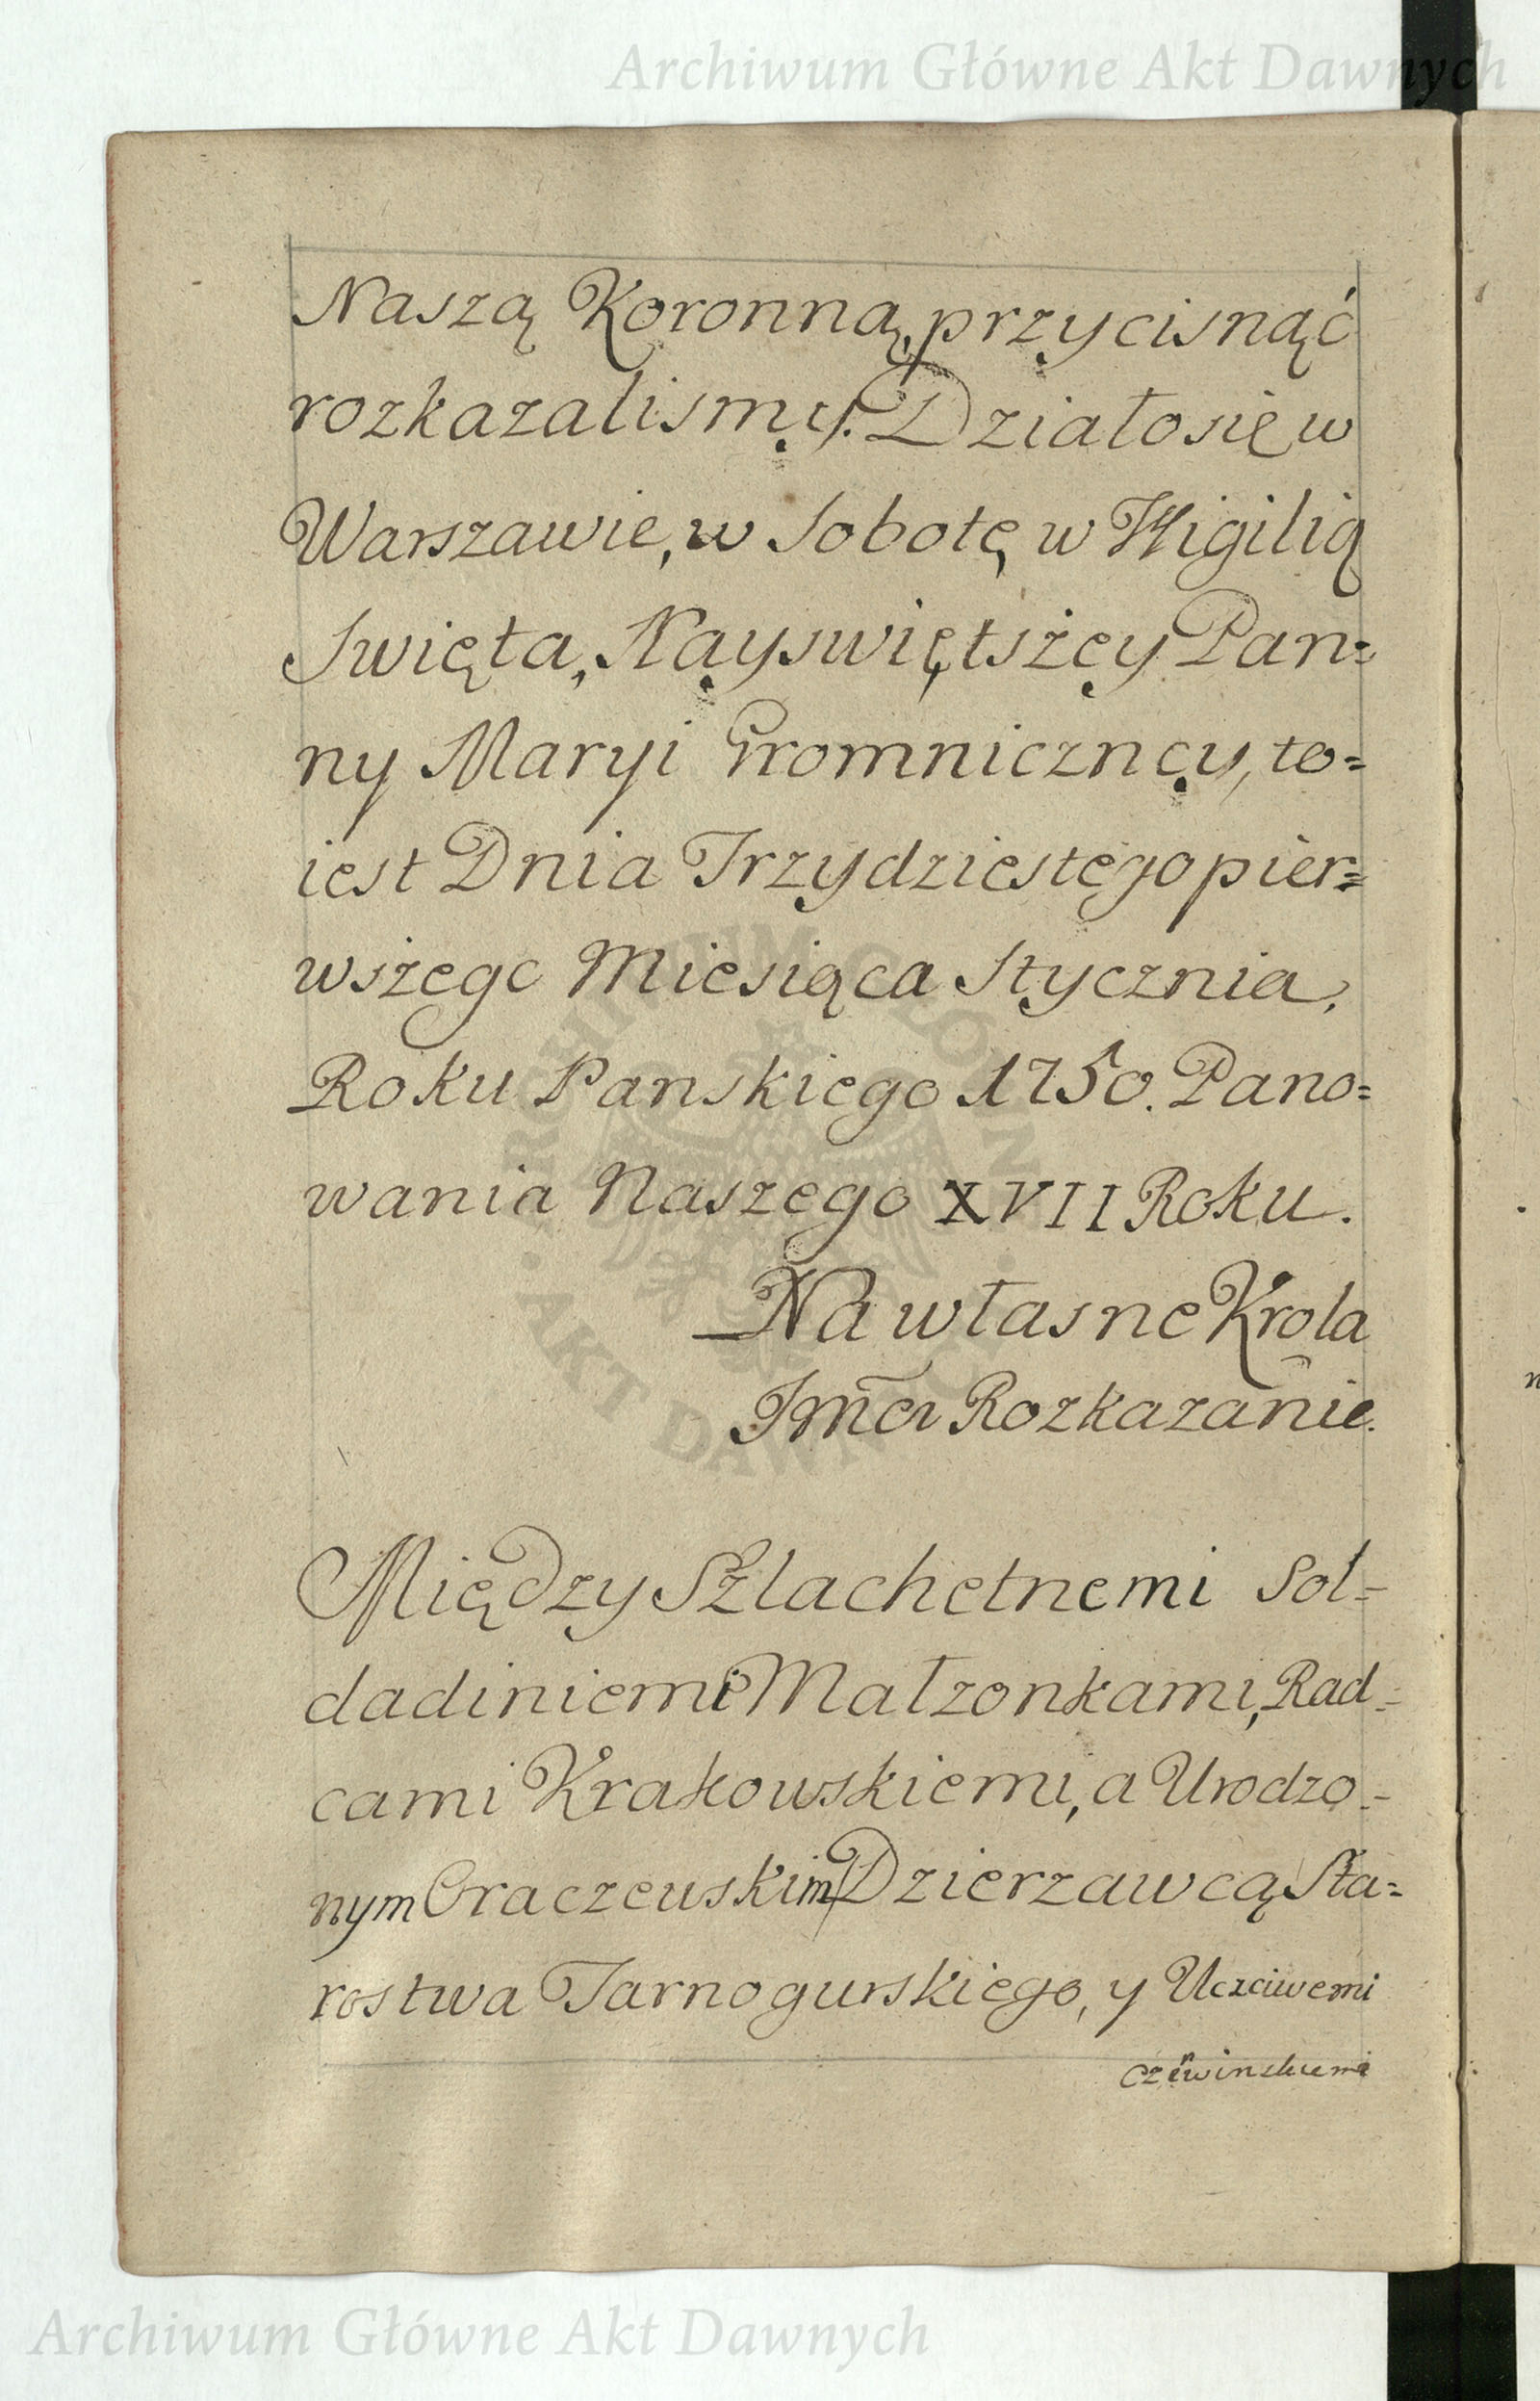 Archiwum Główne Akt Dawnych
Naszą Koronną, przycisnąć
rozkazalismy. Działo się w
Warszawie, w Sobotę w Wigilią
Swięta, Nayswiętszey Pan=
ny Maryi Gromniczney, to=
iest Dnia Trzydziestego pier=
wszego Miesiąca Stycznia,
Roku Panskiego 1750. Pano=
wania Naszego XVII Roku.
Na własne Krola
Jmci Rozkazanie.
Między Szlachetnemi Sol=
dadiniemi Małzonkami, Rad=
cami Krakowskiemi, a Urodzo=
nym Oraczewskim Dzierzawcą Sta=
rostwa Tarnogurskiego, y Uczciwemi
ARCHIWUM GŁÓWNE · AKT DAWNYCH ·
Archiwum Główne Akt Dawnych